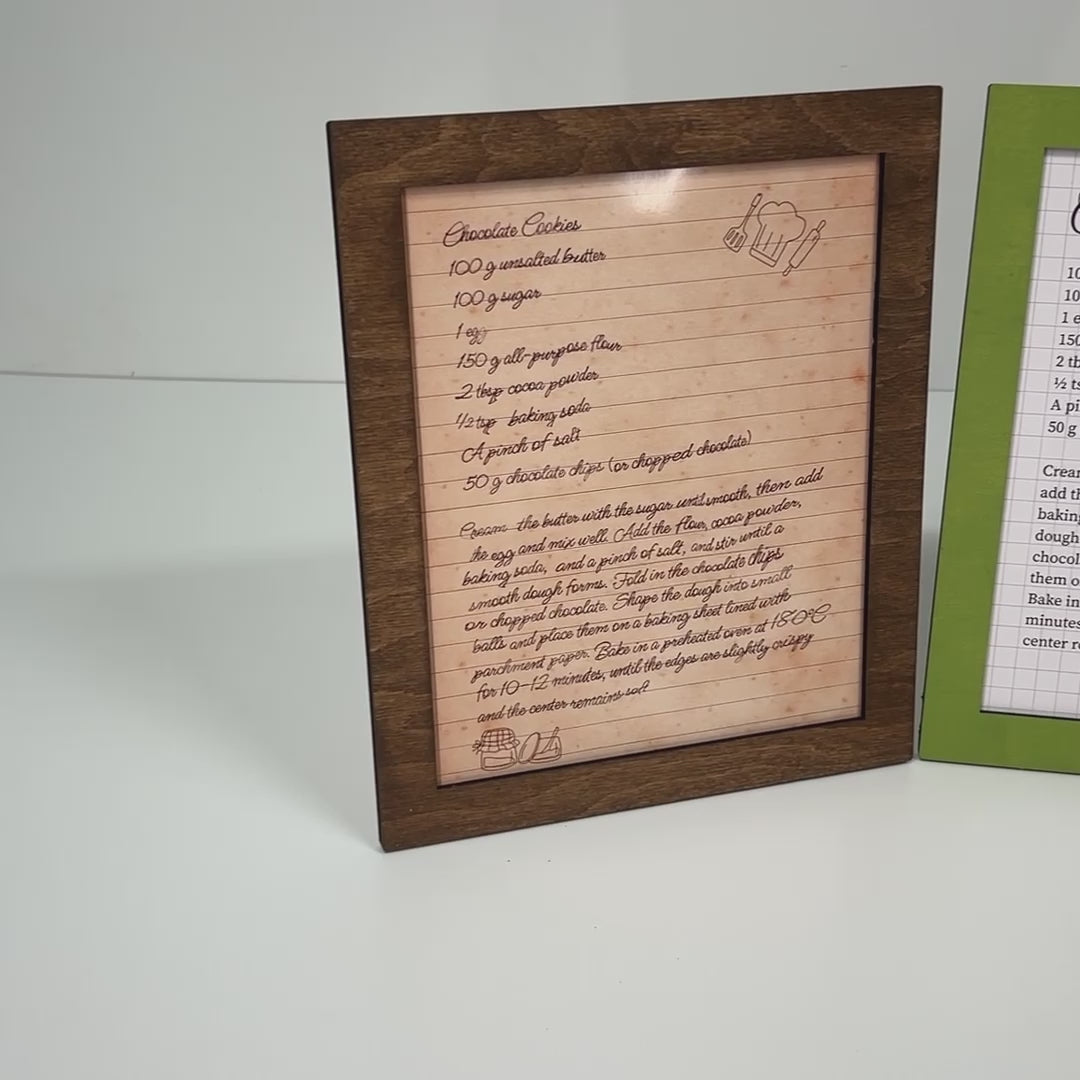 Chocolate Cookies
100 g unsalted butter
100 g sugar
1 egg
150 g all-purpose flour
2 tbsp cocoa powder
1/2 tsp baking soda
A pinch of salt
50 g chocolate chips (or chopped chocolate)
Cream the butter with the sugar until smooth, then add
the egg and mix well. Add the flour, cocoa powder,
baking soda, and a pinch of salt, and stir until a
smooth dough forms. Fold in the chocolate chips
or chopped chocolate. Shape the dough into small
balls and place them on a baking sheet lined with
parchment paper. Bake in a preheated oven at 180°C
for 10-12 minutes, until the edges are slightly crispy
and the center remains soft
10
10
1 e
150
2 tb
½ ts
A pi
50 g
Crea
add th
baking
dough
chocol
them o
Bake in
minutes
center re